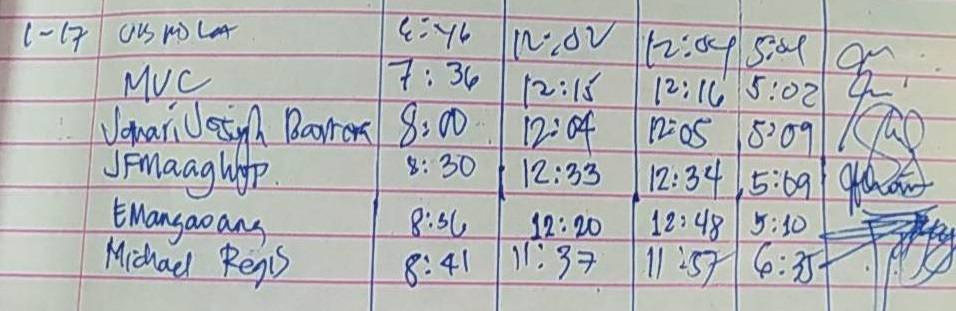 1-17 12:02 12:04 5:01
MVC 7:36 12:15 12:16 5:02
8:00 12:04 12:05 5:09
JFMaaghop 8:30 12:33 12:34 5:09
EMangaoang 8:56 12:20 12:48 5:10
Michael Regis 8:41 11:37 11:57 6:35